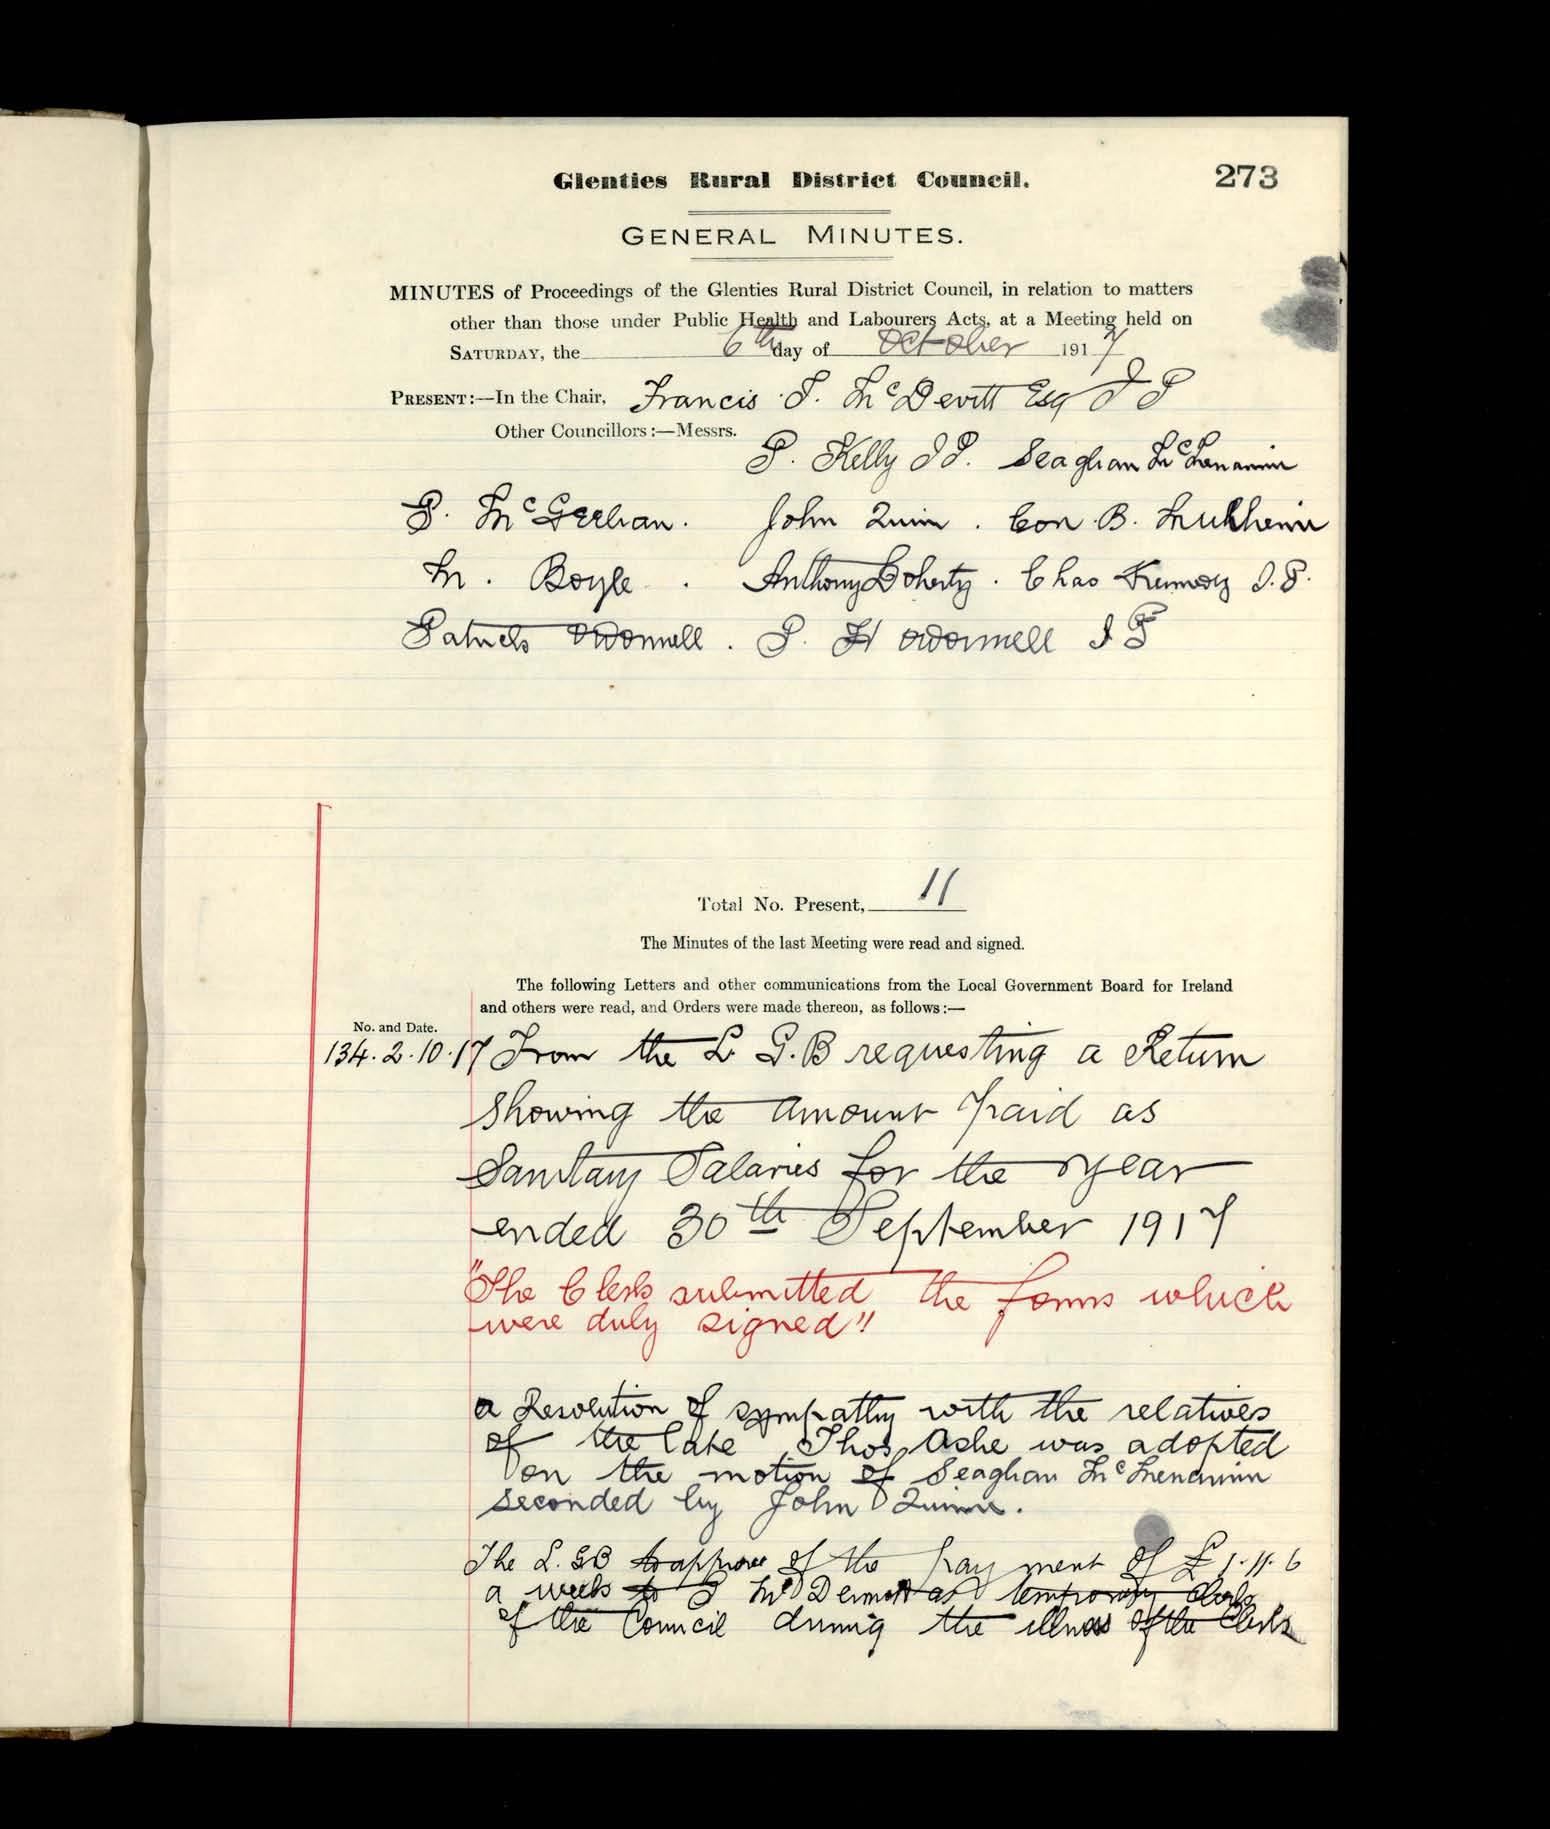 Glenties Rural District Council.
273
GENERAL MINUTES.
MINUTES of Proceedings of the Glenties Rural District Council, in relation to matters
other than those under Public Health and Labourers Acts, at a Meeting held on
SATURDAY, the 6th day of October 1917
PRESENT:—In the Chair, Francis J. McDevitt Esq J P
Other Councillors:—Messrs.
P. Kelly J P. Seaghan McMenamin
P. McGeehan. John Quinn. Con. B.
M. Boyle. Anthony Doherty. Chas Kennedy J.P.
Patrick O'Donnell. P. H O'Donnell J P
Total No. Present, 11
The Minutes of the last Meeting were read and signed.
The following Letters and other communications from the Local Government Board for Ireland
and others were read, and Orders were made thereon, as follows:—
No. and Date.
134. 2.10.17 From the L. G. B requesting a Return
showing the amount paid as
Sanitary Salaries for the year
ended 30th September 1917
"The Clerk submitted the forms which
were duly signed"
a Resolution of sympathy with the relatives
of the late Thos Ashe was adopted
on the motion of Seaghan McMenamin
seconded by John Quinn.
The L. G B to approve of the payment of £1.11.6
a week to J McDermott as temporary Clerk
of the Council during the illness of the Clerk